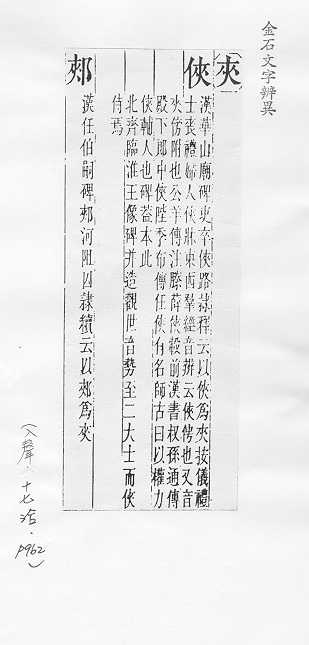 金石文字辨異
夾
俠
漢華山廟碑吏卒俠路隸釋云以俠爲夾按儀禮
士喪禮婦人俠牀東西羣經音辨云俠傍也又音
夾傍附也公羊傳注滕薛俠轂前漢書叔孫通傳
殿下郎中俠陛季布傳任俠有名師古曰以權力
俠輔人也碑蓋本此
北齊臨淮王像碑并造觀世音勢至二大士而俠
侍焉
郟
漢任伯嗣碑郟河阻囚隸續云以郟爲夾
(入聲．十七洽．p962)